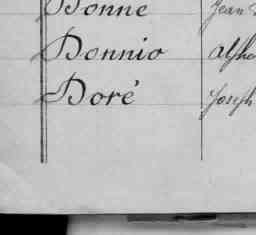 Bonne Jean
Bonnio Alpho
Boré Joseph